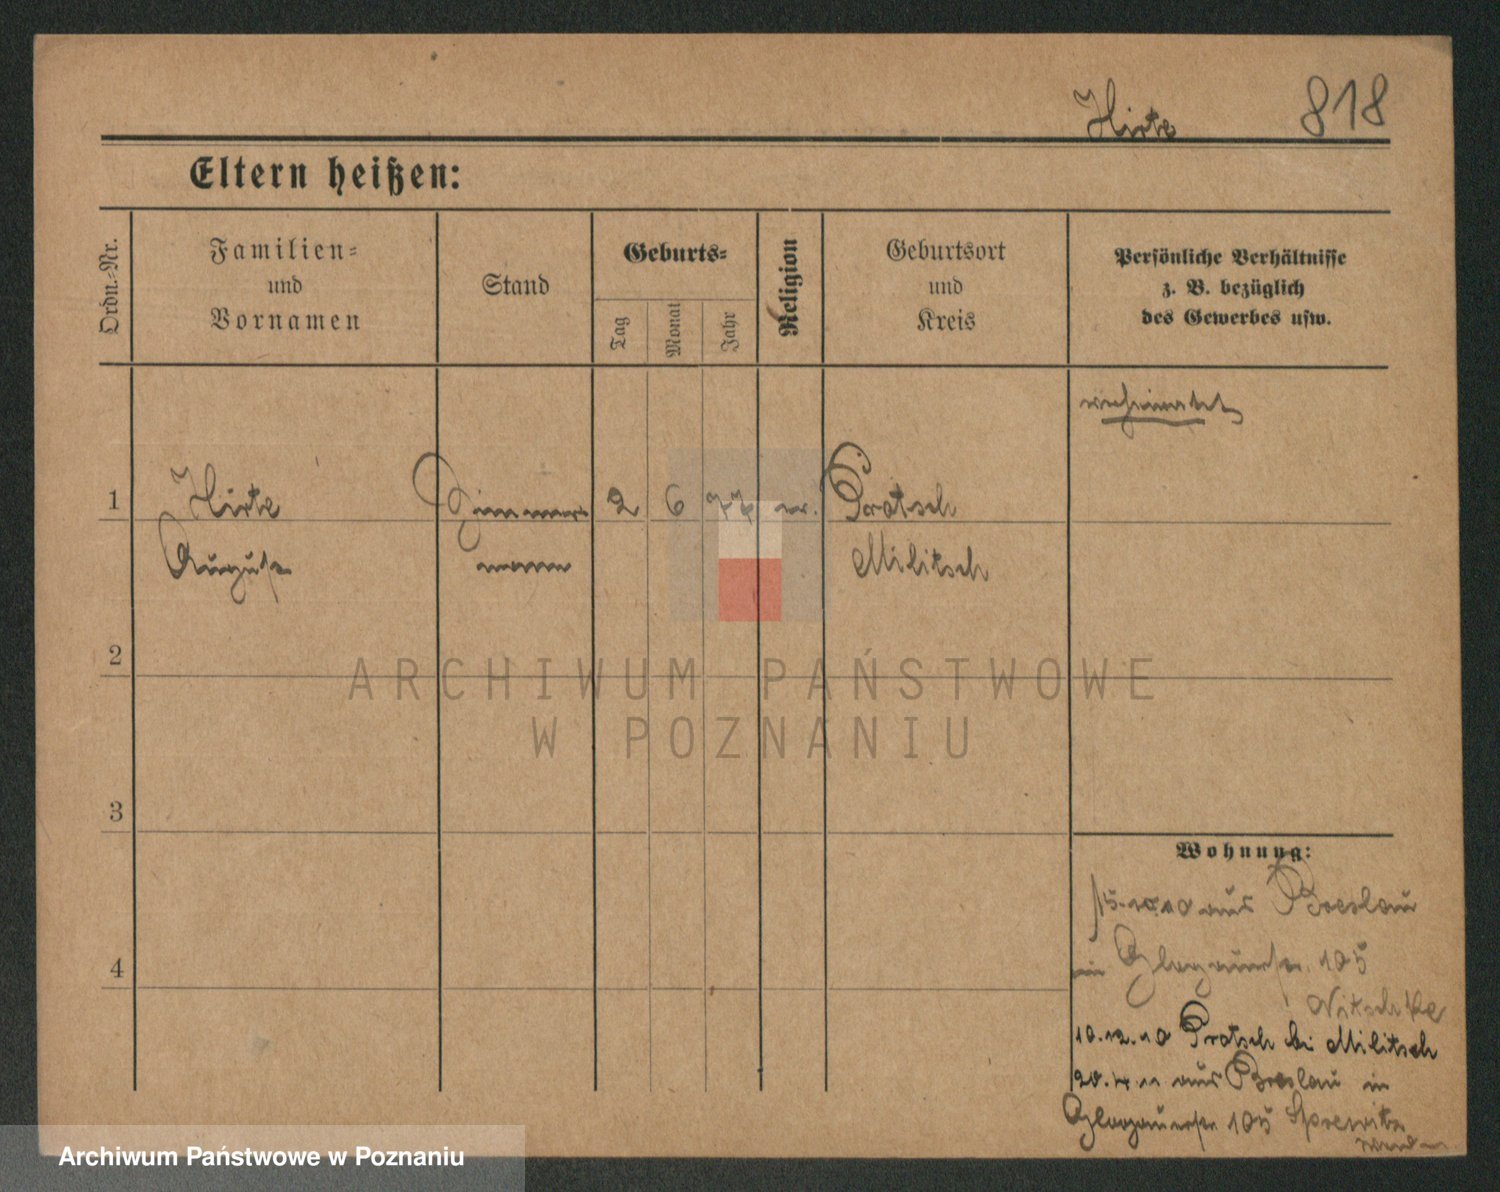 Hirte 818
Eltern heißen:
Ordn.-Nr.
Familien-
und
Vornamen
Stand
Geburts-
Tag
Monat
Jahr
Religion
Geburtsort
und
Kreis
Persönliche Verhältnisse
z. B. bezüglich
des Gewerbes usw.
verheiratet
1 Hirte Zimmer 2 6 77 ev. Pratsch
August mann Militsch
2
3
4
Wohnung:
15.10.10 aus Breslau
in Glogauerstr. 105
Nitschke
10.12.10 Pratsch bei Militsch
20.4.11 aus Breslau in
Glogauerstr 105
ARCHIWUM PAŃSTWOWE
W POZNANIU
Archiwum Państwowe w Poznaniu